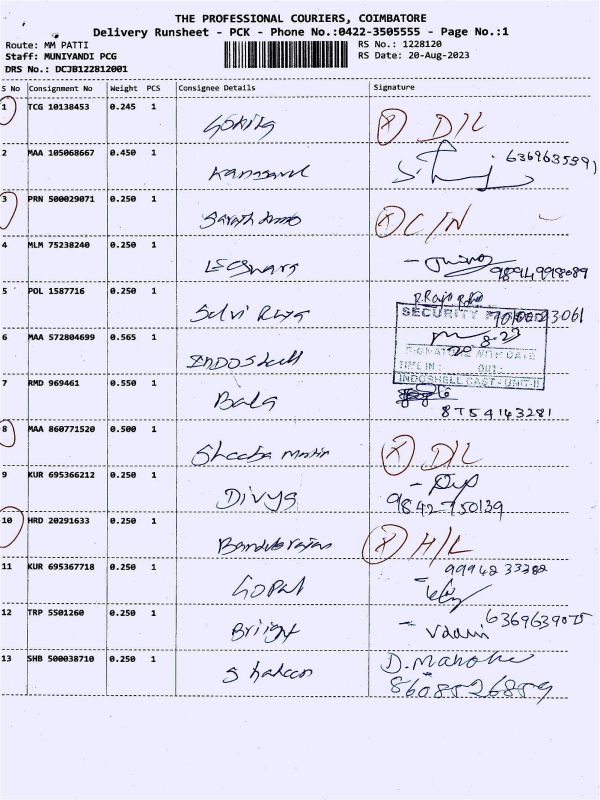 THE PROFESSIONAL COURIERS, COIMBATORE
Delivery Runsheet - PCK - Phone No.:0422-3505555 - Page No.:1
Route: MM PATTI
RS No.: 1228120
Staff: MUNIYANDI PCG
RS Date: 20-Aug-2023
DRS No.: DCJB122812001
S No Consignment No Weight PCS Consignee Details Signature
1 TCG 10138453 0.245 1 X D/L
2 MAA 105068667 0.450 1 6369635391
3 PRN 500029071 0.250 1 X C/N
4 MLM 75238240 0.250 1 9894998089
5 POL 1587716 0.250 1 Selvi
SECURITY
6 MAA 572804699 0.565 1 Indoshell
SIGNATURE WITH DATE
TIME IN : OUT :
INDOSHELL CAST - UNIT-II
7 RMD 969461 0.550 1 Bala 8754143281
8 MAA 860771520 0.500 1 Sheeba X D/L
9 KUR 695366212 0.250 1 Divya
9842750139
10 HRD 20291633 0.250 1 X H/L
11 KUR 695367718 0.250 1 Gopal 9994233382
12 TRP 5501260 0.250 1 6369639075
13 SHB 500038710 0.250 1 D. Manoj
8608526859